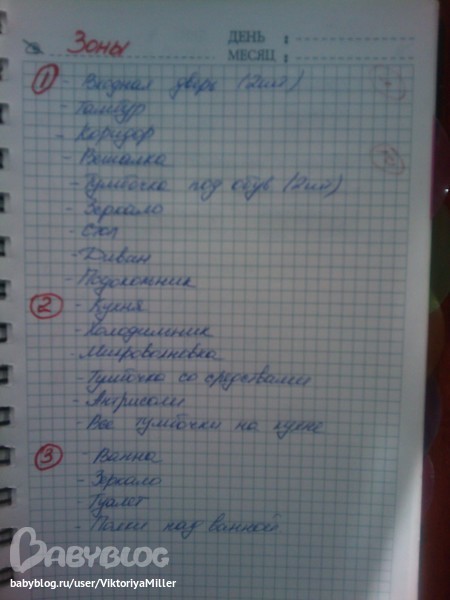 Зоны
ДЕНЬ :
МЕСЯЦ :
1 - Входная дверь (2шт)
- Тамбур
- Коридор
- Вешалка
- Тумбочка под обув (2шт)
- Зеркало
- Стол
- Диван
- Подокольник
2 - Кухня
- Холодильник
- Микроволневка
- Тумбочка со средствами
- Антрисоли
- Все тумбочки на кухне
3 - Ванна
- Зеркало
- Туалет
- Полки под ванной
BABYBLOG
babyblog.ru/user/ViktoriyaMiller